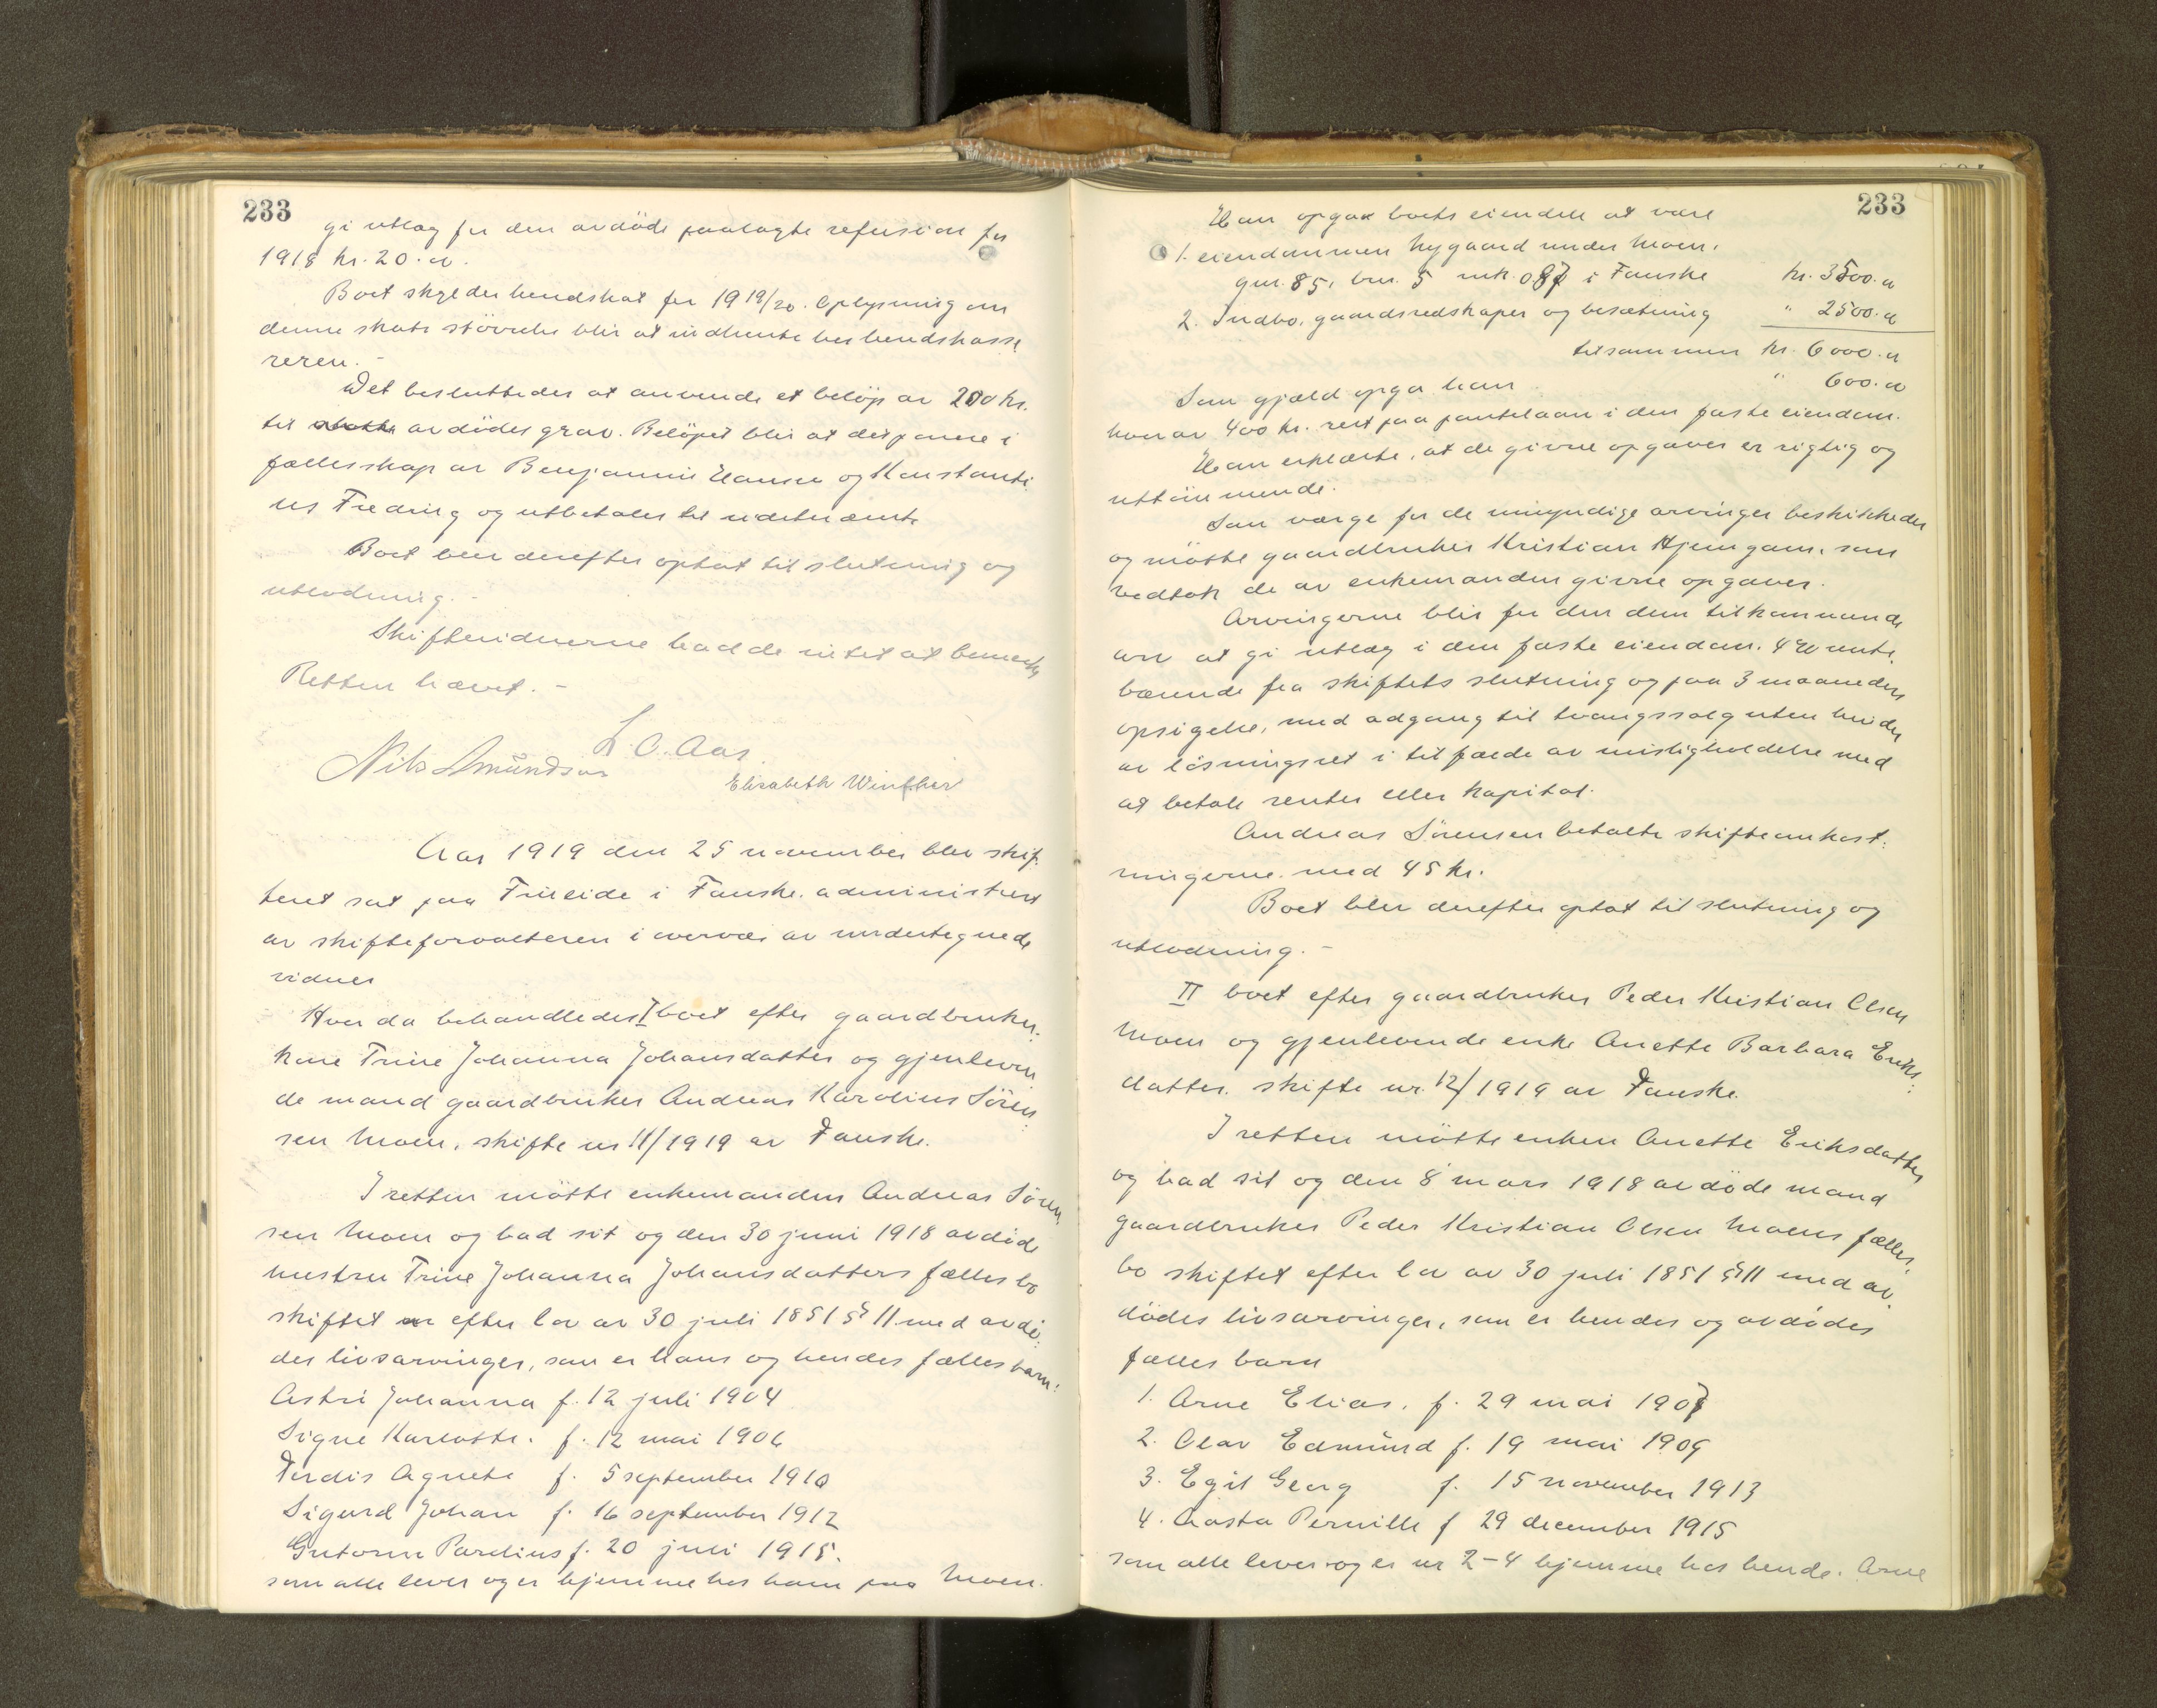 233
gi utlæg for den avdöde paalagte refusion for
1918 kr. 20.00.
Boet skylder herredskat for 1919/20. Oplysning om
denne skats störrelse blir at indhente hos herredskasse
reren. -
Det besluttedes at anvende et belöp av 200 kr.
til avdödes grav. Belöpet blir at disponere i
fællesskap av Benjamin Hansen og Konstanti
us Fredriq og utbetales til sidstnævnte
Boet blev derefter optat til slutning og
utlodning. -
Skiftevidnerne hadde intet at bemerke
Retten hævet. -
L. C. Aas.
Nils Amundsen
Elisabeth Winther
Aar 1919 den 25 november blev skif-
teret sat paa Fineide i Fauske, administrert
av skifteforvalteren i overvær av undertegnede
vidner
Hvor da behandledes I boet efter gaardbruker-
kone Trine Johanna Johansdatter og gjenleven
de mand gaardbruker Andreas Karolius Sören
sen Moen, skifte nr 11/1919 av Fauske.
I retten mötte enkemanden Andreas Sören
sen Moen og bad sit og den 30 juni 1918 avdöde
hustru Trine Johanna Johansdatters fællesbo
skiftet efter lov av 30 juli 1851 § 11 med avdö-
des livsarvinger, som er hans og hendes fælles barn:
Astri Johanna f. 12 juli 1904
Signe Karlotte. f. 12 mai 1906
Ferdis Agnete f. 5 september 1910
Sigurd Johan f. 16 september 1912
Gutorm Parelius f. 20 juli 1915.
som alle lever og er hjemme hos ham paa Moen.
233
Han opgav boets eiendele at være
1. eiendommen Nygaard under Moen,
gnr. 85, bnr. 5 mk. 087 i Fauske kr. 3500.00
2. Indbo, gaardsredskaper og besætning " 2500.00
tilsammen kr. 6000.00
Som gjæld opga han " 600.00
hvorav 400 kr. rest paa pantelaan i den faste eiendom.
Han erklærte, at de givne opgaver er rigtig og
uttömmende.
Som værge for de umyndige arvinger beskikkedes
og mötte gaardbruker Kristian Hjemgam, som
vedtok de av enkemanden givne opgaver.
Arvingerne blir for den dem tilkommende
arv at gi utlæg i den faste eiendom, 4% rente-
bærende fra skiftets slutning og paa 3 maaneders
opsigelse, med adgang til tvangssalg uten hinder
av lösningsret i tilfælde av misligholdelse med
at betale renter eller kapital.
Andreas Sörensen betalte skifteomkost-
ningerne med 45 kr.
Boet blev derefter optat til slutning og
utlodning. -
II boet efter gaardbruker Peder Kristian Olsen
Moen og gjenlevende enke Anette Barbara Eriks-
datter. skifte nr. 12/1919 av Fauske.
I retten mötte enken Anette Eriksdatter
og bad sit og den 8 mars 1918 avdöde mand
gaardbruker Peder Kristian Olsen Moens fælles-
bo skiftet efter lov av 30 juli 1851 § 11 med av-
dödes livsarvinger, som er hendes og avdödes
fælles barn
1. Arne Elias, f. 29 mai 1907
2. Olav Edmund f. 19 mai 1909
3. Egil Georg f. 15 november 1913
4. Aasta Pernille f 29 december 1915
som alle lever og er nr 2-4 hjemme hos hende. Arne